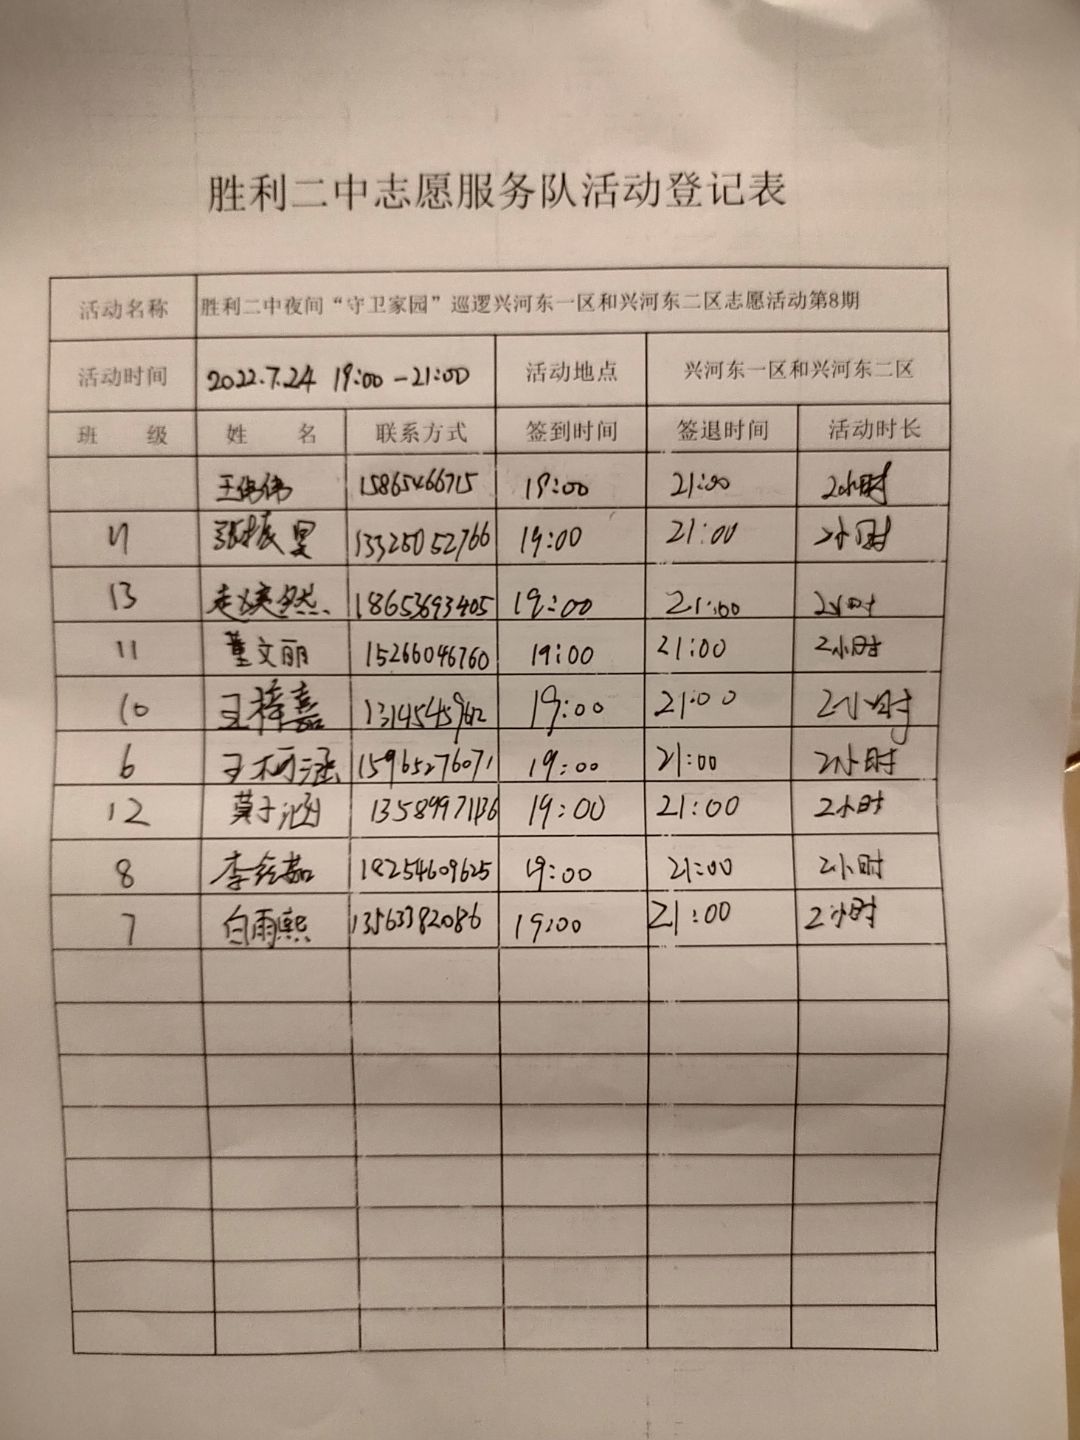 胜利二中志愿服务队活动登记表
活动名称 胜利二中夜间“守卫家园”巡逻兴河东一区和兴河东二区志愿活动第8期
活动时间 2022.7.24 19:00-21:00 活动地点 兴河东一区和兴河东二区
班 级 姓 名 联系方式 签到时间 签退时间 活动时长
王伟伟 15865466715 19:00 21:00 2小时
11 张振昊 13325052766 19:00 21:00 2小时
13 赵奕然 18653693405 19:00 21:00 2小时
11 董文丽 15266046760 19:00 21:00 2小时
10 王梓嘉 19:00 21:00 2小时
6 王柯涵 15965276071 19:00 21:00 2小时
12 莫子涵 19:00 21:00 2小时
8 18254609625 19:00 21:00 2小时
7 白雨熙 13563382086 19:00 21:00 2小时